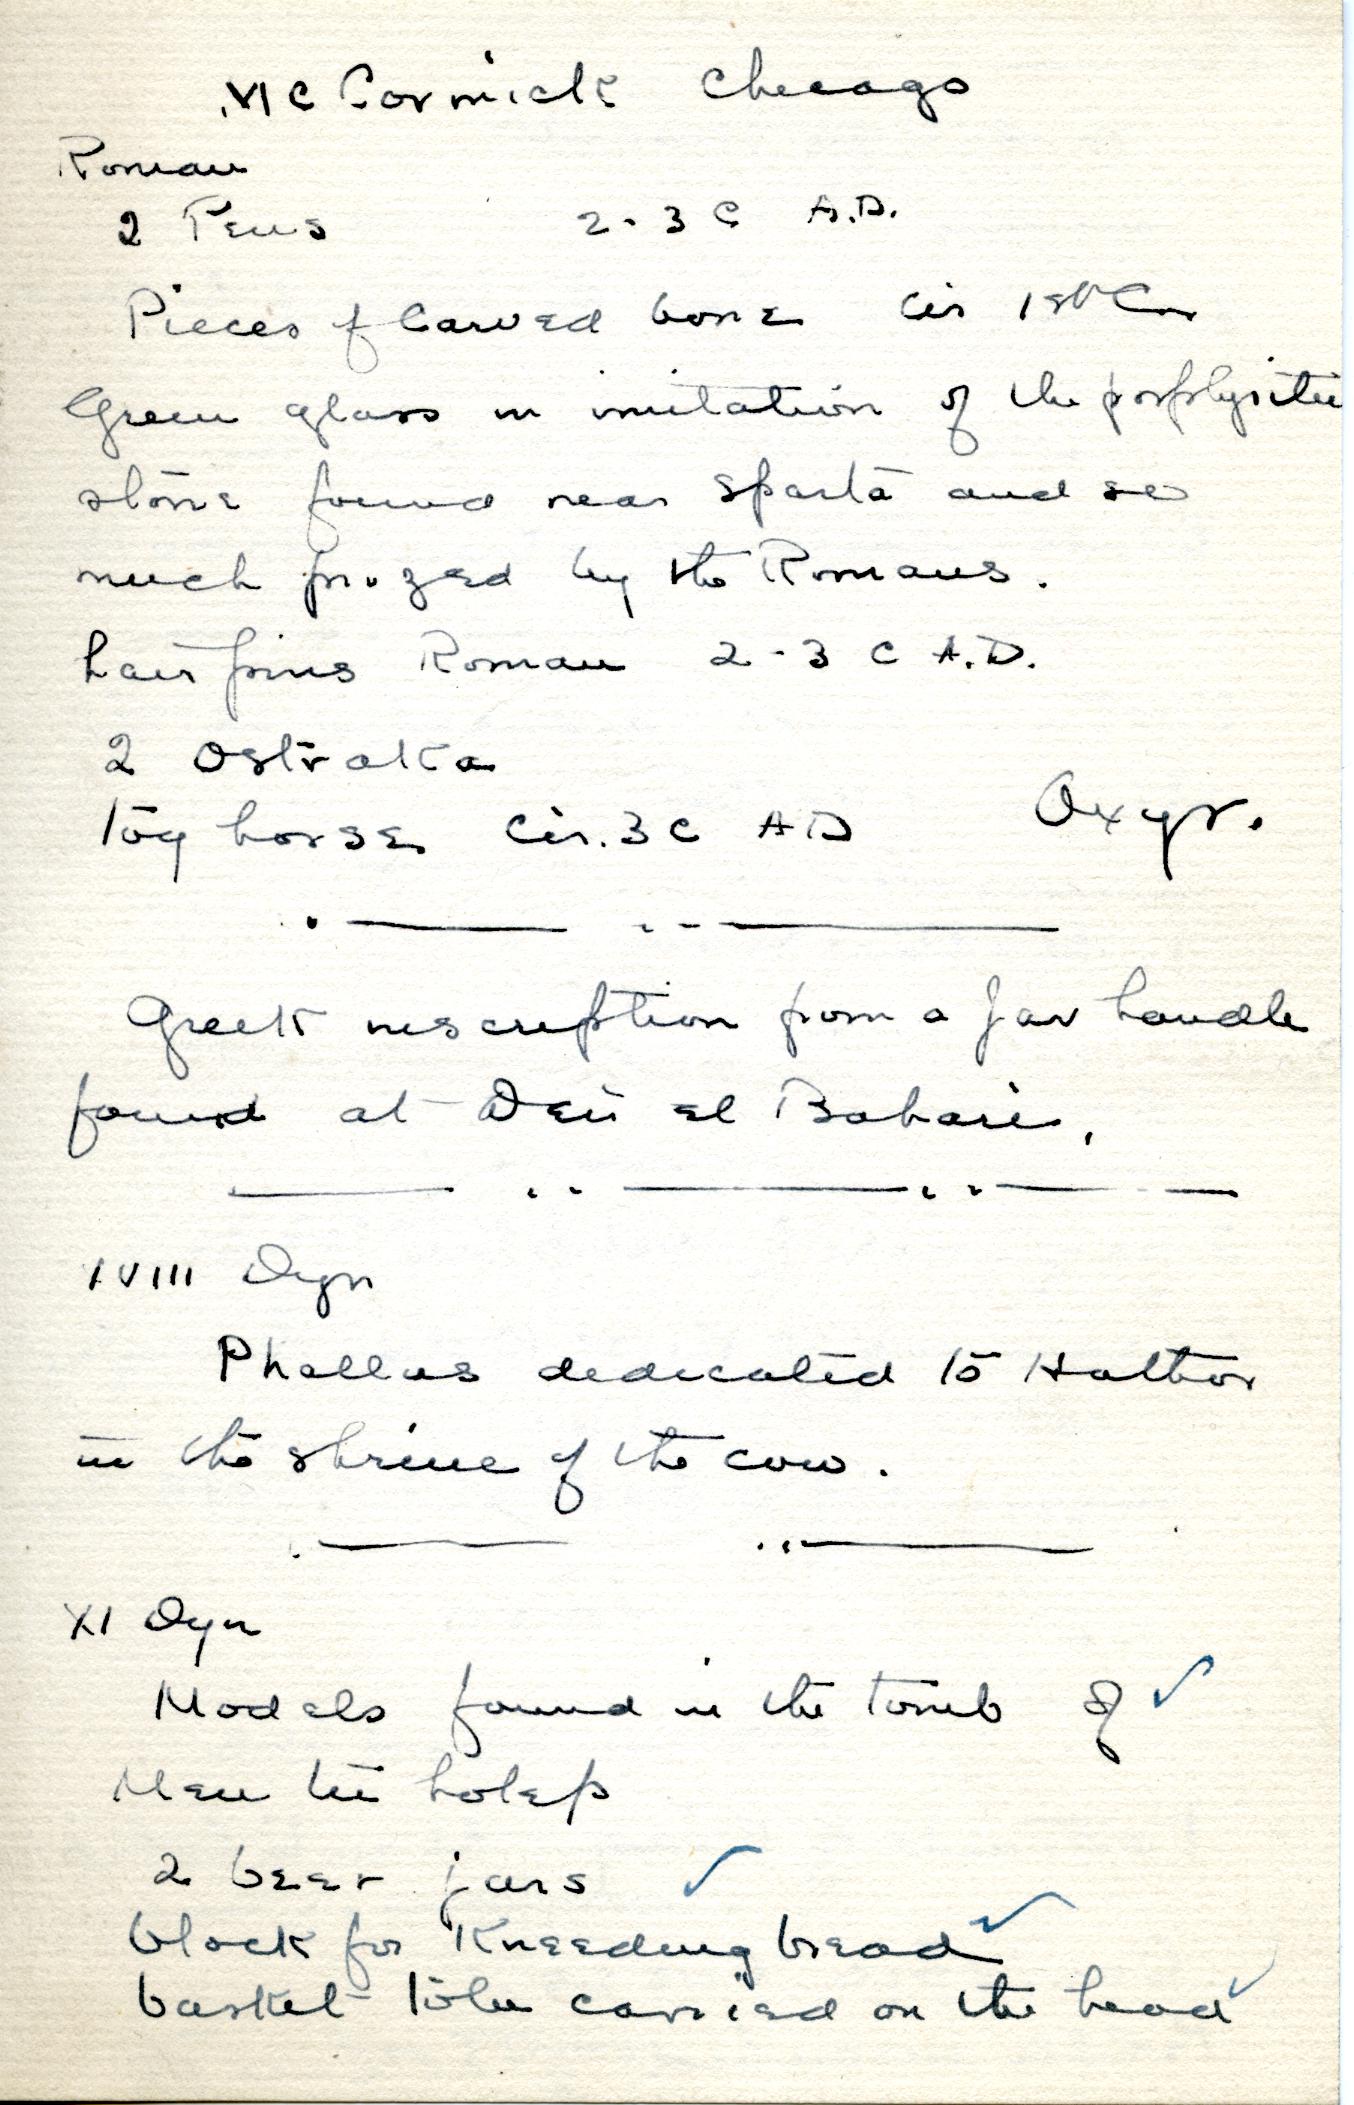 McCormick Chicago
Roman
2 Pens 2-3 C A.D.
Pieces of Carved bone Cir 1st C
Green glass in imitation of the
stone found near Sparta and so
much prized by the Romans.
hair pins Roman 2-3 C A.D.
2 Ostraka
toy horse Cir. 3 C AD Oxyr.
Greek inscription from a jar handle
found at Deir el Bahari,
XVIII Dyn
Phallus dedicated to Hathor
in the shrine of the cow.
XI Dyn
Models found in the tomb of ✓
Men tu hotep
2 beer jars ✓
block for Kneeding bread ✓
basket to be carried on the head ✓